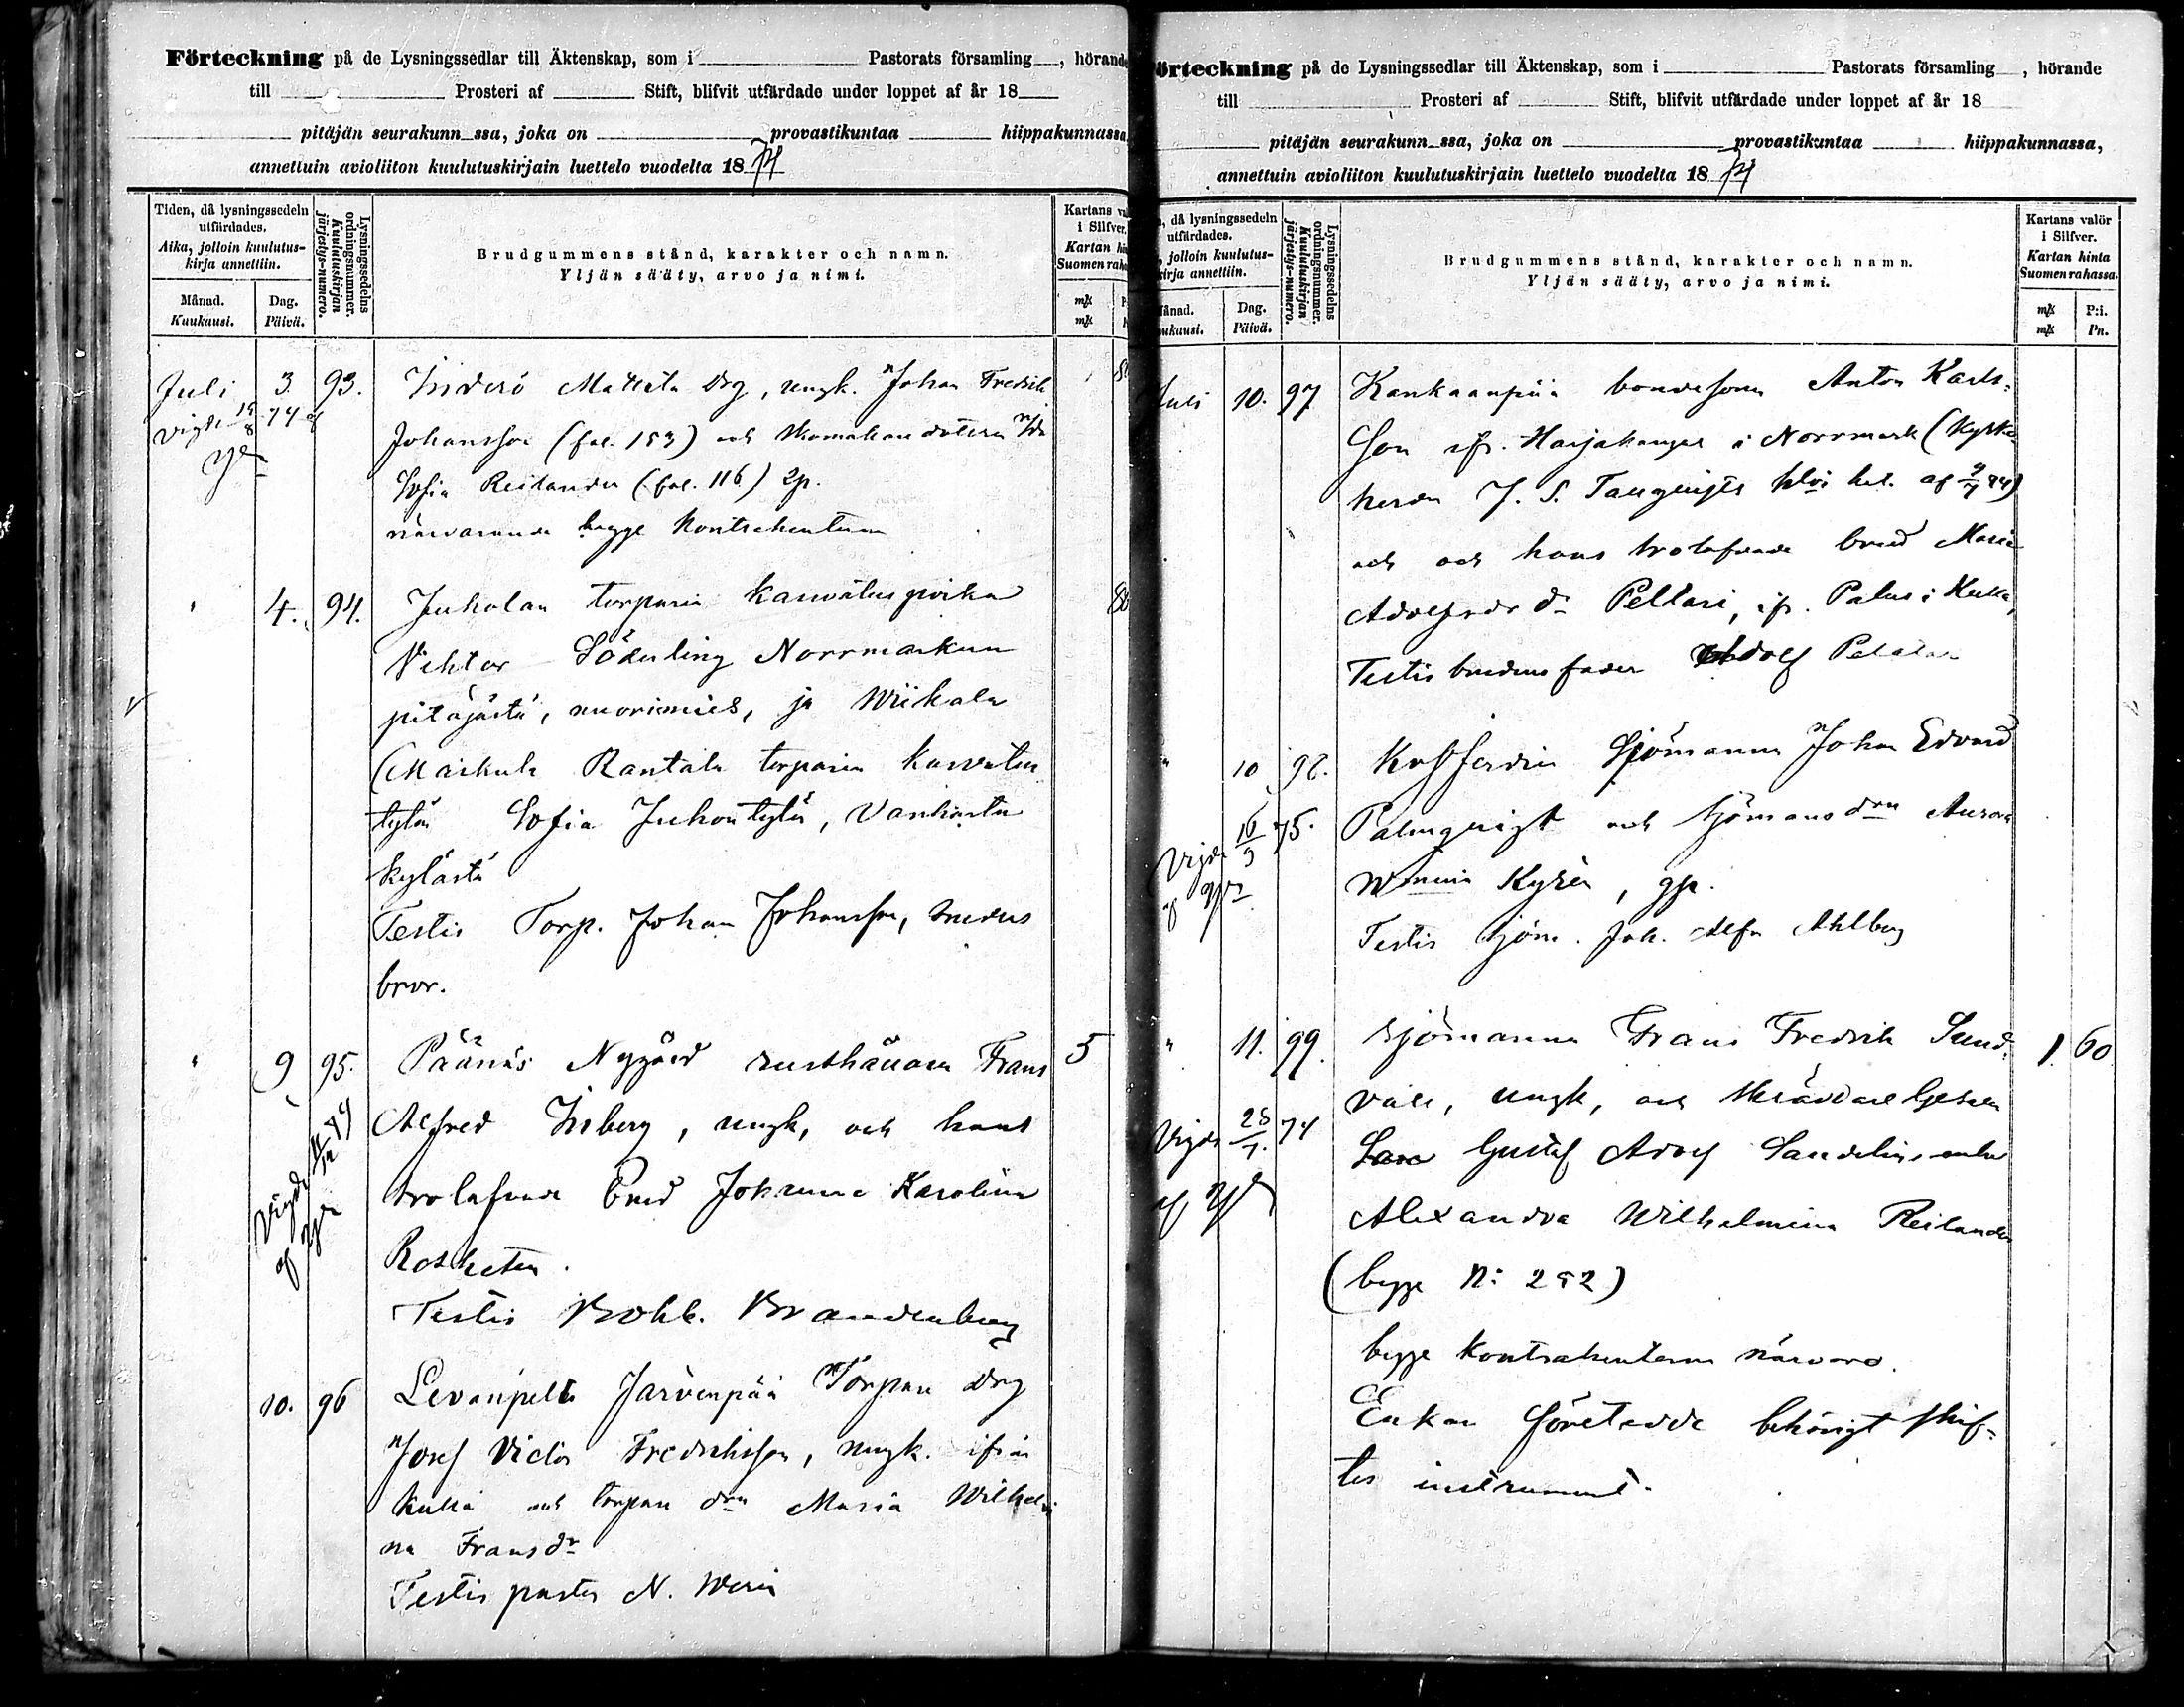 Förteckning på de Lysningssedlar till Äktenskap, som i Pastorats församling , hörande
till Prosteri af Stift, blifvit utfärdade under loppet af år 18
pitäjän seurakunn ssa, joka on provastikuntaa hiippakunnassa
annettuin avioliiton kuulutuskirjain luettelo vuodelta 1874
Tiden, då lysningssedeln utfärdades.
Aika, jolloin kuulutus-kirja annettiin.
Månad. Kuukausi.
Dag. Päivä.
Lysningssedelns ordningsnummer.
Kuulutuskirjan järjestys-numero.
Brudgummens stånd, karakter och namn.
Yljän sääty, arvo ja nimi.
Kartans
i Silfver.
Kartan
Suomen
Juli 3. 93. Inderö Mattila drg, ungk. Johan Fredrik
Vigde 74 Johansson (fol. 153) och
Sofia Reilander (fol. 116) 2p.
närvarande begge Kontrahenterna
" 4. 94. Juholan torparin kasvatus poika
Vihtor Söderling Norrmarkun
pitäjästä, nuorimies, ja Wiikala
(Markula Rantala torparin kasvatus
tytön Sofia Juhontytär, Vanhasta
kylästä
Testis Torp. Johan Johansson, brudens
bror.
" 9 95. Päänäs Nygård rusthållaren Frans 5
Alfred Isberg, ungk, och hans
trolofvade brud Johanna Karolina
Rosketen.
Testis Bokh. Brandenburg
Vigde af
10. 96 Levanpelto Järvenpää Torpare drg
Josef Victor Fredriksson, ungk. ifrån
Kulla och torpare drn Maria Wilhelmi
na Fransdr
Testis pastor N.
Förteckning på de Lysningssedlar till Äktenskap, som i Pastorats församling , hörande
till Prosteri af Stift, blifvit utfärdade under loppet af år 18
pitäjän seurakunn ssa, joka on provastikuntaa hiippakunnassa,
annettuin avioliiton kuulutuskirjain luettelo vuodelta 1874
, då lysningssedeln utfärdades.
jolloin kuulutus-kirja annettiin.
Dag. Päivä.
Lysningssedelns ordningsnummer.
Kuulutuskirjan järjestys-numero.
Brudgummens stånd, karakter och namn.
Yljän sääty, arvo ja nimi.
Kartans valör i Silfver.
Kartan hinta Suomen rahassa.
P:i. Pn.
Juli 10. 97 Kankaanpää bondesonen Anton Karls-
son ifr. Harjakangas i Norrmark (Kyrko
herden J. S.
och och hans trolofvade brud Maria
Adolfsdr Peltari, ifr. Palus i Kulla,
Testis brudens fader Adolf
" 10 98. Sjömannen Johan Edvard
Vigde 75. Palmqvist och Sjömansdrn Aurora
Kyrén, gp.
Testis sjöm. Joh. Alfr Ahlberg
" 11. 99. Sjömannen Frans Fredrik Sund- 1 60
vall, ungk, och Skräddare Gesällen
Vigde 74 Gustaf Adolf Sandelins enka
Alexandra Wilhelmina Reilander
(begge N: 252)
begge Kontrahenterna närvaro.
Enkan företedde behörigt skif-
tes instrument.